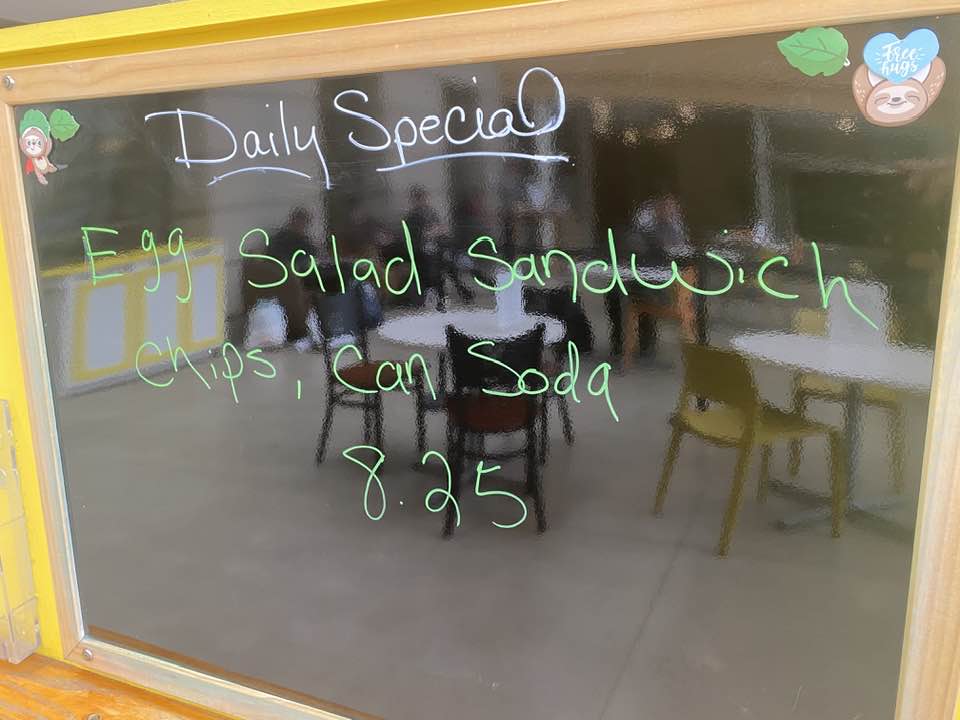 Daily Special
Free
hugs
Egg Salad Sandwich
Chips, Can Soda
8.25